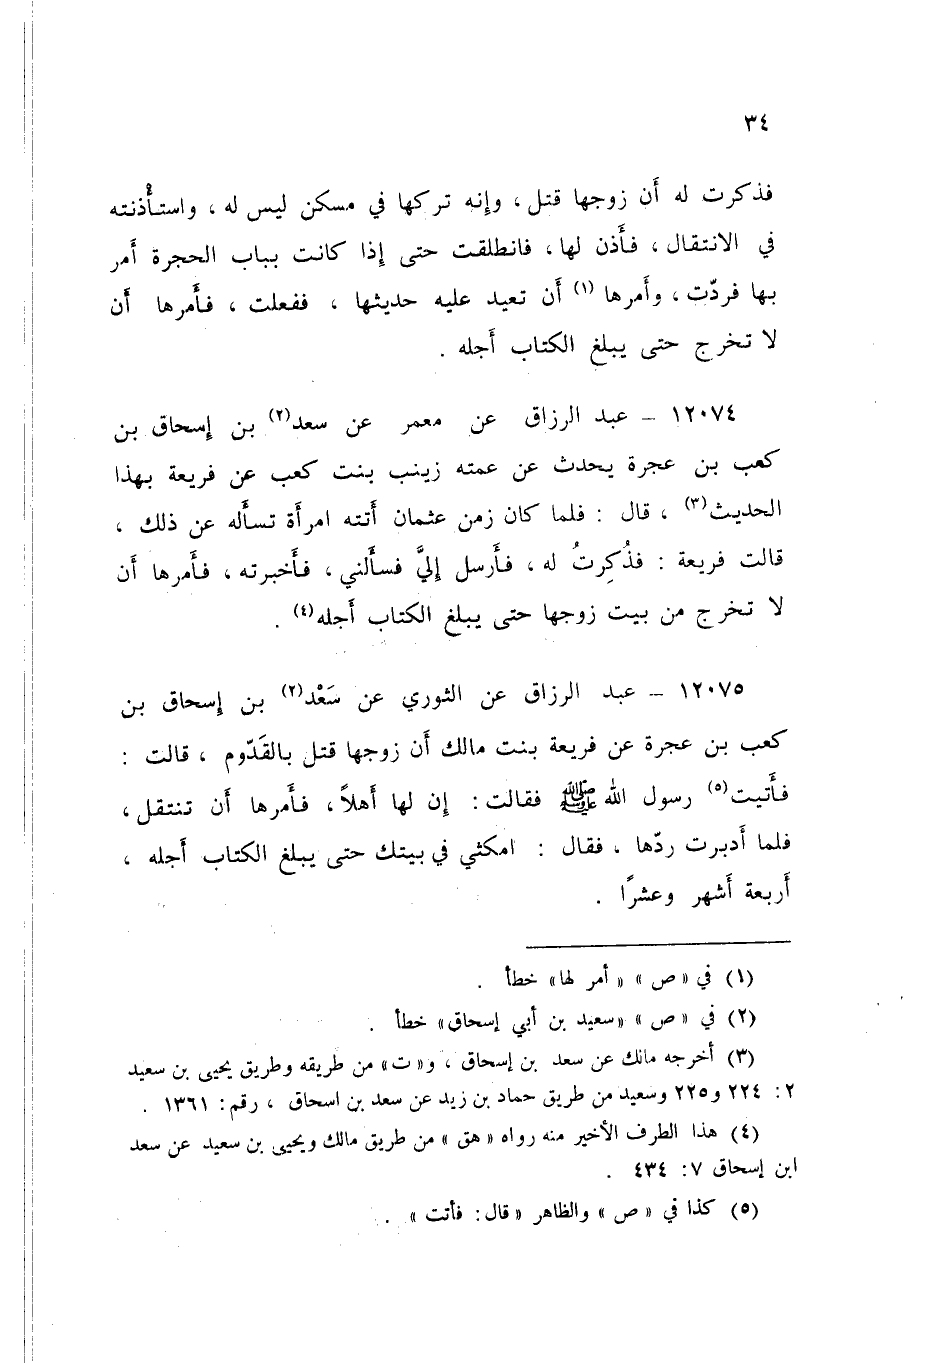 ٣٤
فذكرت له أن زوجها قتل ، وإنه تركها في مسكن ليس له ، واستأْذنته
في الانتقال ، فأَذن لها ، فانطلقت حتى إذا كانت بباب الحجرة أَمر
بها فردّت ، وأَمرها (١) أَن تعيد عليه حديثها ، ففعلت ، فأَمرها أَن
لا تخرج حتى يبلغ الكتاب أَجله .
١٢٠٧٤ – عبد الرزاق عن معمر عن سعد (٢) بن إسحاق بن
كعب بن عجرة يحدث عن عمته زينب بنت كعب عن فريعة بهذا
الحديث (٣) ، قال : فلما كان زمن عثمان أَتته امرأَة تسأَله عن ذلك ،
قالت فريعة : فذُكِرتُ له ، فأَرسل إليَّ فسأَلني ، فأَخبرته ، فأَمرها أَن
لا تخرج من بيت زوجها حتى يبلغ الكتاب أَجله (٤) .
١٢٠٧٥ – عبد الرزاق عن الثوري عن سَعْد (٢) بن إسحاق بن
كعب بن عجرة عن فريعة بنت مالك أَن زوجها قتل بالقَدّوم ، قالت :
فأَتيت (٥) رسول الله ﷺ فقالت : إن لها أَهلاً ، فأَمرها أَن تنتقل ،
فلما أَدبرت ردّها ، فقال : امكثي في بيتك حتى يبلغ الكتاب أَجله ،
أَربعة أَشهر وعشرًا .
(١) في « ص » « أمر لها » خطأ .
(٢) في « ص » «سعيد بن أبي إسحاق» خطأ .
(٣) أخرجه مالك عن سعد بن إسحاق ، و«ت» من طريقه وطريق يحيى بن سعيد
٢ : ٢٢٤ و٢٢٥ وسعيد من طريق حماد بن زيد عن سعد بن اسحاق ، رقم : ١٣٦١ .
(٤) هذا الطرف الأخير منه رواه « هق » من طريق مالك ويحيى بن سعيد عن سعد
ابن إسحاق ٧ : ٤٣٤ .
(٥) كذا في « ص » والظاهر « قال : فأتت » .